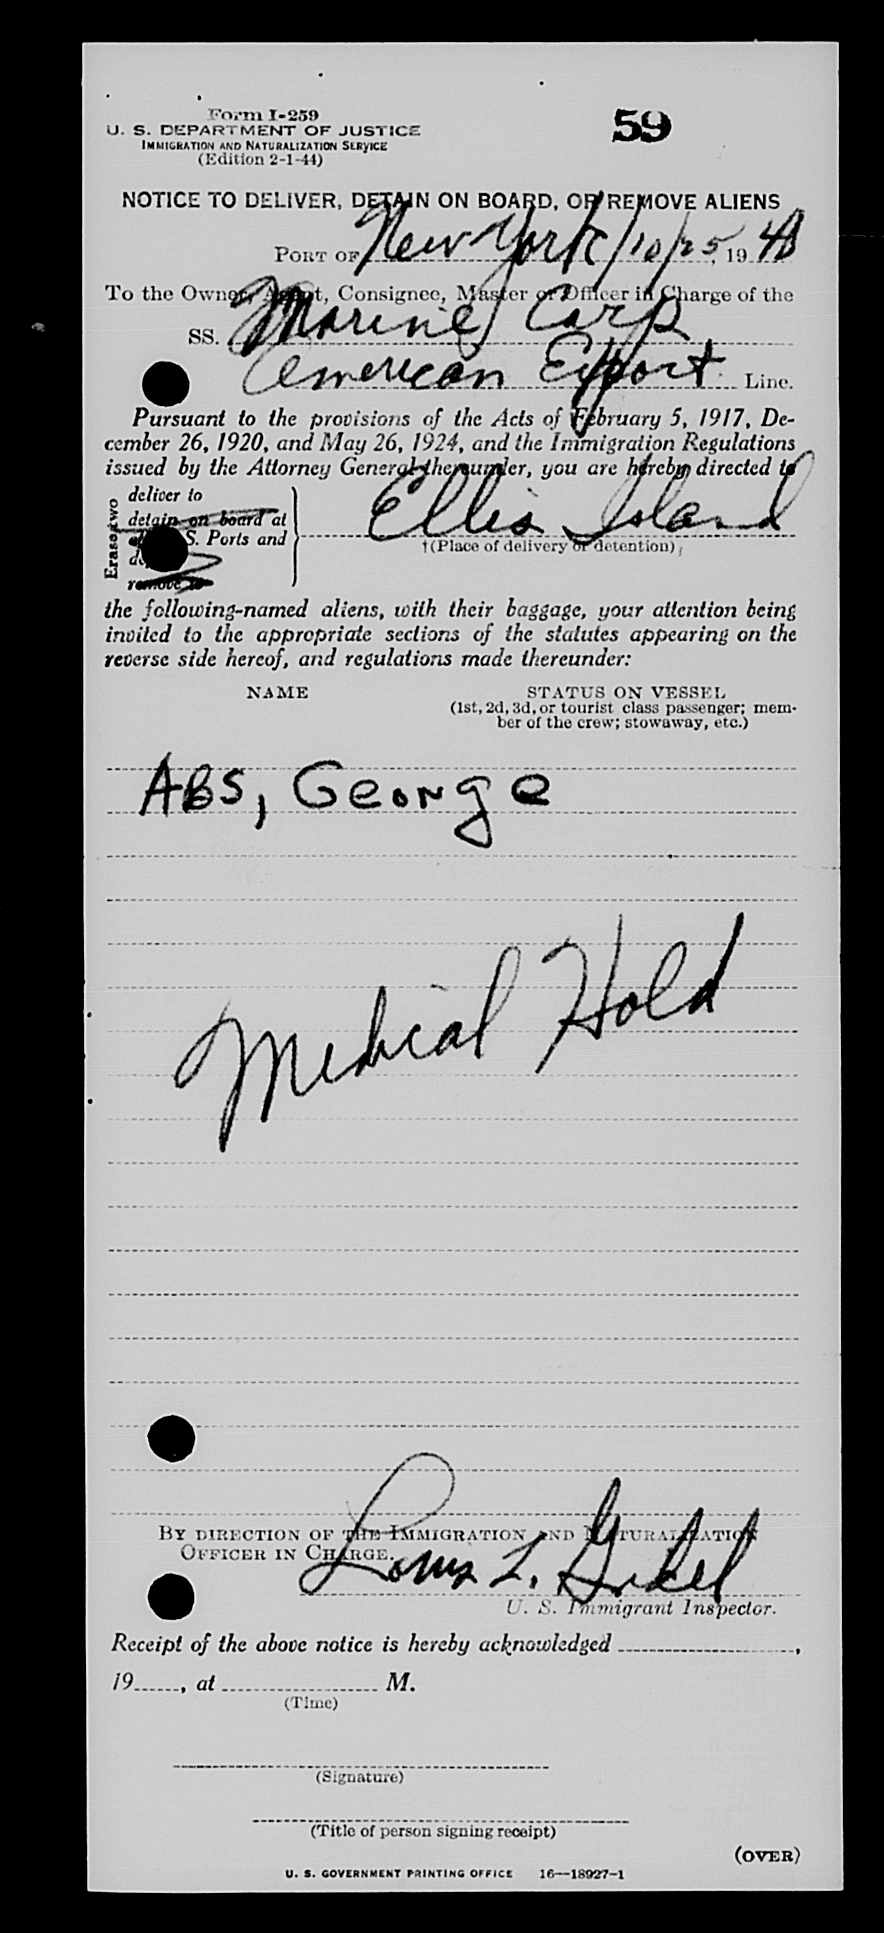 Form I-259
59
U. S. DEPARTMENT OF JUSTICE
IMMIGRATION AND NATURALIZATION SERVICE
(Edition 2-1-44)
NOTICE TO DELIVER, DETAIN ON BOARD, OR REMOVE ALIENS
PORT OF New York 10/25, 1948
To the Owner, Agent, Consignee, Master or Officer in Charge of the
SS. Marine Carp
American Export Line.
Pursuant to the provisions of the Acts of February 5, 1917, De-
cember 26, 1920, and May 26, 1924, and the Immigration Regulations
issued by the Attorney General thereunder, you are hereby directed to
Erase two
deliver to
detain on board at
S. Ports and
remove to
Ellis Island
†(Place of delivery or detention)
the following-named aliens, with their baggage, your attention being
invited to the appropriate sections of the statutes appearing on the
reverse side hereof, and regulations made thereunder:
NAME
STATUS ON VESSEL
(1st, 2d, 3d, or tourist class passenger; mem-
ber of the crew; stowaway, etc.)
ABS, George
Medical Hold
BY DIRECTION OF THE IMMIGRATION AND NATURALIZATION
OFFICER IN CHARGE.
Louis L.
U. S. Immigrant Inspector.
Receipt of the above notice is hereby acknowledged ,
19 , at M.
(Time)
(Signature)
(Title of person signing receipt)
(OVER)
U. S. GOVERNMENT PRINTING OFFICE 16—18927-1